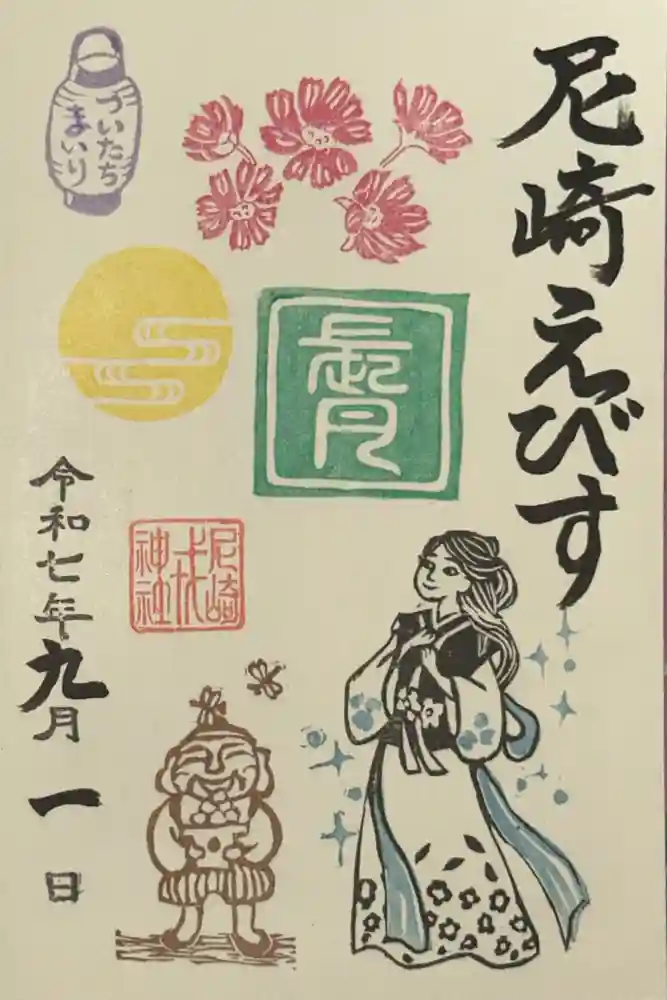 尼崎えびす
長月
ついたち
まいり
尼崎
戎
神社
令和七年九月一日